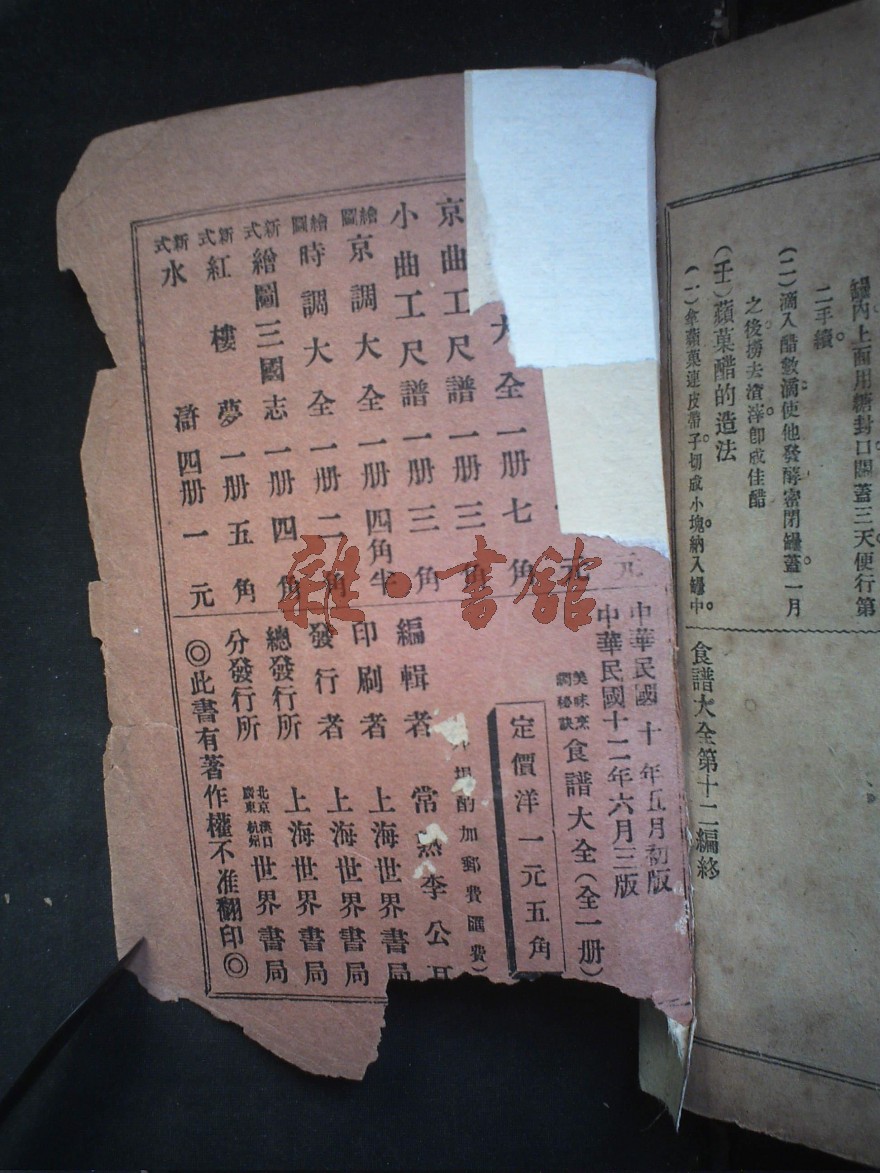 罎內上面用糖封口閉蓋三天便行第
二手續
(二)滴入醋數滴使他發酵密閉罎蓋一月
之後撈去渣滓卽成佳醋
(壬)蘋菓醋的造法
(一)拿蘋菓連皮帶子切成小塊納入罎中
食譜大全第十二編終
元
元
大全一册七角
京曲工尺譜一册三角
小曲工尺譜一册三角
繪圖京調大全一册四角半
繪圖時調大全一册二角
新式繪圖三國志一册四角
新式紅樓夢一册五角
新式水滸四册一元
中華民國十年五月初版
中華民國十二年六月三版
美味烹調秘訣食譜大全(全一册)
定價洋一元五角
埠酌加郵費匯費)
編輯者 常熟李公耳
印刷者 上海世界書局
發行者 上海世界書局
總發行所 上海世界書局
分發行所 北京漢口廣東杭州世界書局
◎此書有著作權不准翻印◎
雜·書館